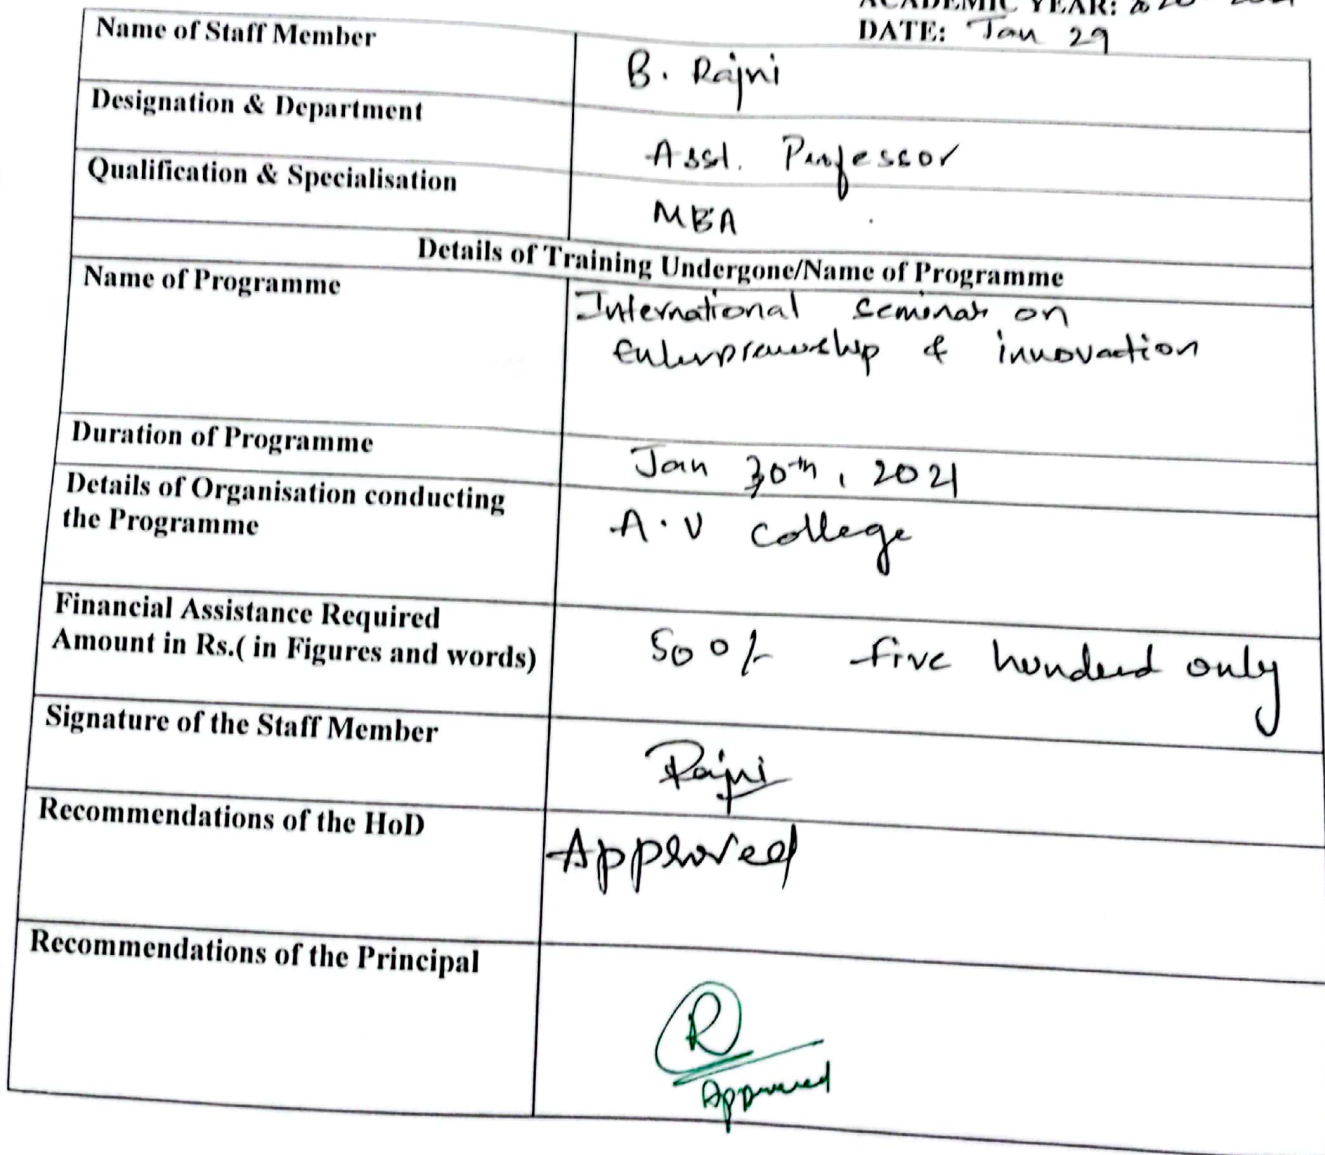 ACADEMIC YEAR:
DATE: Jan 29
Name of Staff Member
B. Rajni
Designation & Department
Asst. Professor
Qualification & Specialisation
MBA
Details of Training Undergone/Name of Programme
Name of Programme
International Seminar on
Enterpreneurship & innovaction
Duration of Programme
Jan 30th, 2021
Details of Organisation conducting
the Programme
A.V College
Financial Assistance Required
Amount in Rs.( in Figures and words)
500/- five hundred only
Signature of the Staff Member
Rajni
Recommendations of the HoD
Approved
Recommendations of the Principal
R
Approved